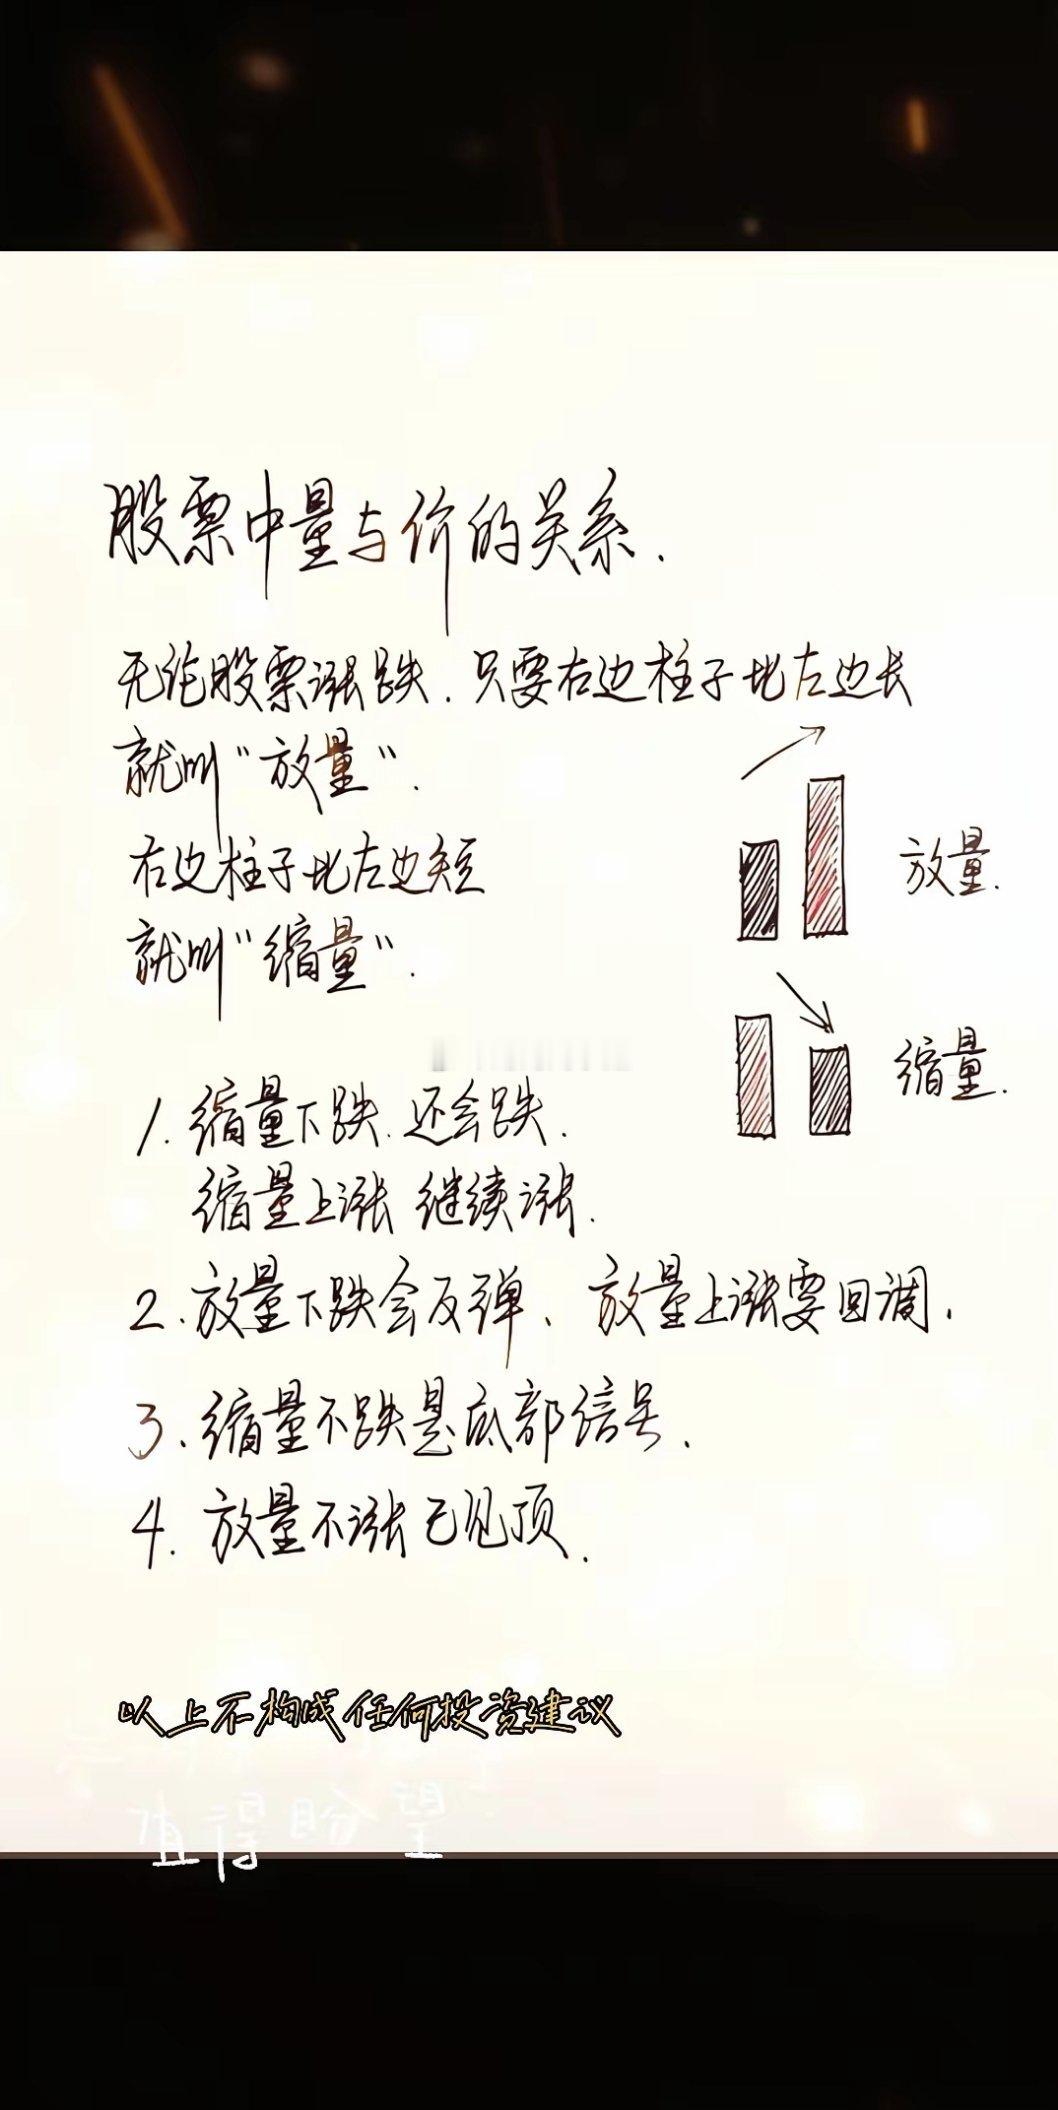 股票中量与价的关系.
无论股票涨跌.只要右边柱子比左边长
就叫"放量".
右边柱子比左边短
就叫"缩量".
放量.
缩量.
1.缩量下跌.还会跌.
缩量上涨 继续涨.
2.放量下跌会反弹、放量上涨要回调.
3、缩量不跌是底部信号.
4.放量不涨已见顶.
以上不构成任何投资建议
值得盼望